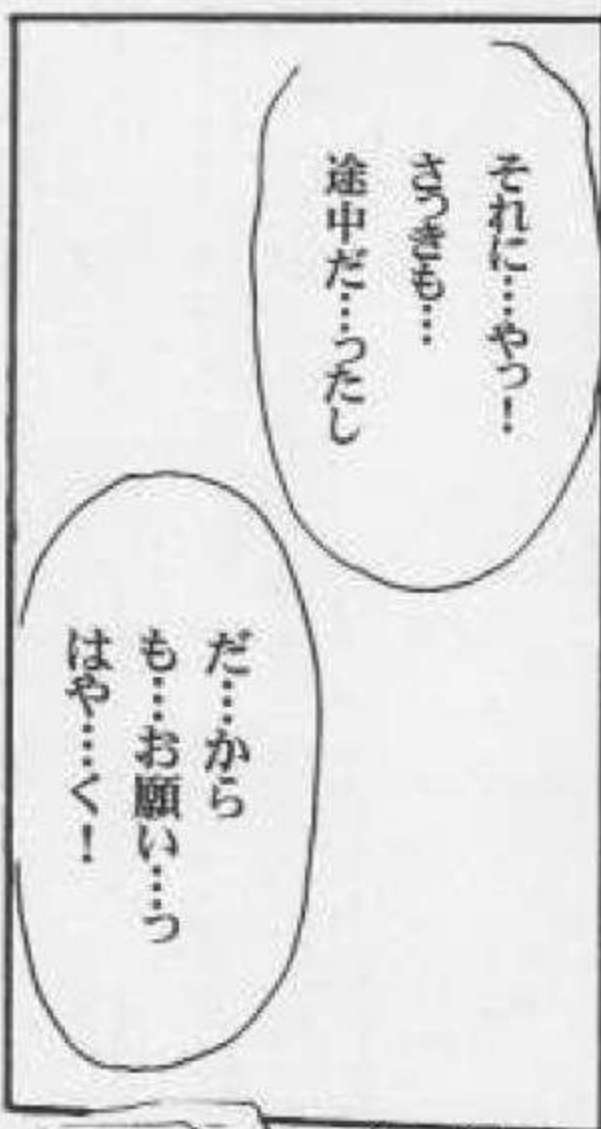 それに…やっ！
さっきも…
途中だ…ったし
だ…から
も…お願い…っ
はや…く！